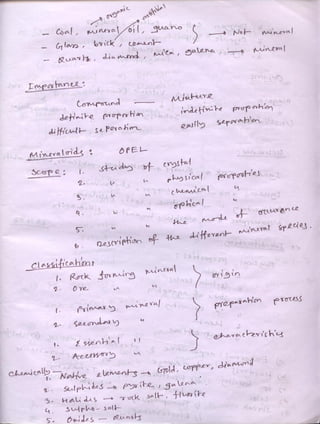 organic artificial
- Coal, mineral oil, guano } → Not mineral
- Glass, brick, cement
- Quartz, diamond, mica, galena, → Mineral
Importance :
Compound — Mixture
definite proportion indefinite proportion
difficult seperation easily seperation
Mineraloids : OPEL
Scope : 1. study of crystal
2. " " physical properties
3. " " chemical "
4. " " optical "
5. " " the mode of occurence
6. Description of the different mineral species.
Classification :
1. Rock forming mineral } origin
2. Ore "
1. Primary mineral } preparation process
2. secondary "
1. Essential " } characteristics
2. Accessory "
Chemically - 1. Native elements → Gold, copper, diamond
2. sulphides → Pyrite, galena
3. Halides → rock salt, fluorite
4. Sulpho-salt
5. Oxides — Quartz